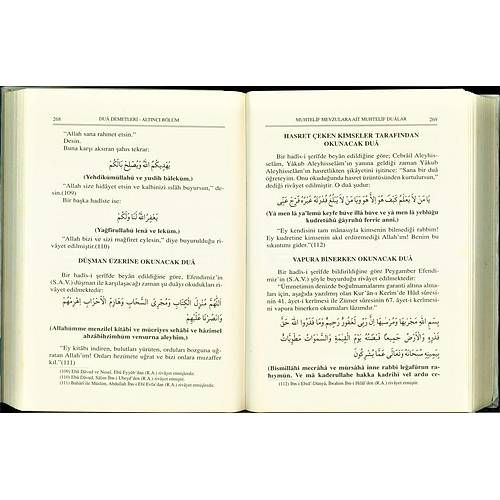 268 DUÂ DEMETLERİ - ALTINCI BÖLÜM
"Allah sana rahmet etsin."
Desin.
Buna karşı aksıran şahıs tekrar:
يَهْدِيكُمُ اللّٰهُ وَيُصْلِحُ بَالَكُمْ
(Yehdikümüllahü ve yuslih bâleküm.)
"Allah size hidâyet etsin ve kalbinizi ıslâh buyursun," de-
sin.(109)
Bir başka hadîste ise:
يَغْفِرُ اللّٰهُ لَنَا وَلَكُمْ
(Yağfirullahü lenâ ve leküm.)
"Allah bizi ve sizi mağfiret eylesin," diye buyurulduğu ri-
vâyet edilmiştir.
DÜŞMAN ÜZERİNE OKUNACAK DUÂ
Bir hadîs-i şerîfde beyân göre, Efendimiz'in
(S.A.V.) düşman ile karşılaşacağı zaman şu duâyı okudukları ri-
vâyet edilmektedir:
اَللّٰهُمَّ مُنْزِلَ الْكِتَابِ وَمُجْرِيَ السَّحَابِ وَهَازِمَ الْاَحْزَابِ اِهْزِمْهُمْ
وَانْصُرْنَا عَلَيْهِمْ
(Allahümme menzilel kitâbi ve mücriyes sehâbi ve hâzimel
ahzâbihzimhüm vensurna aleyhim.)
"Ey kitâbı indiren, bulutları yürüten, orduları bozguna uğ-
ratan Allah'ım! Onları hezimete uğrat ve bizi onlara muzaffer
kıl."(111)
(109) Ebû Dâvud ve Neseî, Ebû Eyyûb'dan (R.A.) rivâyet etmişlerdir.
(110) Ebû Dâvud, Sâlim İbn-i Ubeyd'den (R.A.) rivâyet etmiştir.
(111) Buhârî ile Müslim, Abdullah İbn-i Ebî Evfa'dan (R.A.) rivâyet etmişlerdir.
MUHTELİF MEVZULARA AİT MUHTELİF DUÂLAR 269
HASRET ÇEKEN KİMSELER TARAFINDAN
OKUNACAK DUÂ
Bir hadîs-i şerîfde beyân edildiğine göre; Cebrâil Aleyhis-
selâm, Yâkub Aleyhisselâm'ın yanına geldiği zaman Yâkub
Aleyhisselâm'ın hasretlikten şikâyetini işitince: "Sana bir duâ
öğreteyim. Onu okuduğunda hasret üzüntüsünden kurtulursun,"
dediği rivâyet edilmiştir. O duâ şudur:
يَا مَنْ لَا يَعْلَمُ كَيْفَ هُوَ اِلَّا هُوَ وَيَا مَنْ لَا يَبْلُغُ قُدْرَتَهُ غَيْرُهُ فَرِّجْ عَنِّى
(Yâ men lâ ya'lemü keyfe hüve illâ hüve ve yâ men lâ yeblüğu
kudretühü ğayruhü ferric annî.)
"Ey kendisini tam mânasıyla kimsenin bilmediği rabbim!
Ey kudretine kimsenin akıl erdiremediği Allah'ım! Benim bu
sıkıntımı gider."(112)
VAPURA BİNERKEN OKUNACAK DUÂ
Bir hadîs-i şerîfde bildirildiğine göre Peygamber Efendi-
miz'in (S.A.V.) şöyle buyurduğu rivâyet edilmektedir:
"Ümmetimin denizde boğulmalarını garanti altına almala-
rı için, aşağıda yazılmış olan Kur'ân-ı Kerîm'de Hûd sûresi-
nin 41. âyet-i kerîmesi ile Zümer sûresinin 67. âyet-i kerîmesi-
ni vapura binerken okumaları lâzımdır."
بِسْمِ اللّٰهِ مَجْرٰيهَا وَمُرْسٰيهَا اِنَّ رَبِّى لَغَفُورٌ رَحِيمٌ وَمَا قَدَرُوا اللّٰهَ حَقَّ
قَدْرِهِ وَالْاَرْضُ جَمِيعًا قَبْضَتُهُ يَوْمَ الْقِيٰمَةِ وَالسَّمٰوَاتُ مَطْوِيَّاتٌ
بِيَمِينِهِ سُبْحَانَهُ وَتَعَالٰى عَمَّا يُشْرِكُونَ
(Bismillâhi mecrâhâ ve mürsâhâ inne rabbî leğafûrun ra-
hıymün. Ve mâ kaderullahe hakka kadrihî vel ardu ce-
(112) İbn-i Ebid'-Dünyâ, İbrahim İbn-i Hilâl'den (R.A.) rivâyet etmiştir.